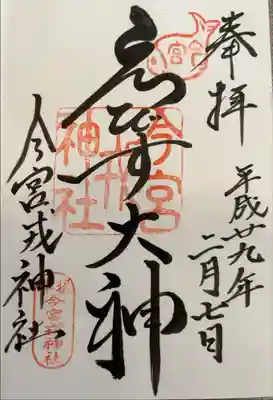 奉拝
平成廿九年
二月七日
ゑびす大神
今宮戎神社
今宮
今宮戎神社